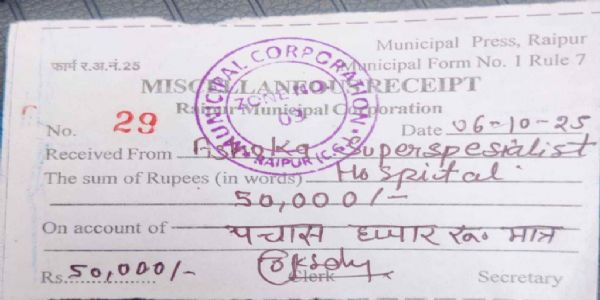 Municipal Press, Raipur
फार्म र.अ.नं.25 Municipal Form No. 1 Rule 7
MISCELLANEOUS RECEIPT
Raipur Municipal Corporation
No. 29 Date 06-10-25
Received From Ashoka Superspesialist
The sum of Rupees (in words) Hospital
50,000/-
On account of पचास हजार रू. मात्र
Rs. 50,000/- Clerk Secretary
MUNICIPAL CORPORATION
ZONE NO.
09
RAIPUR (C.G.)